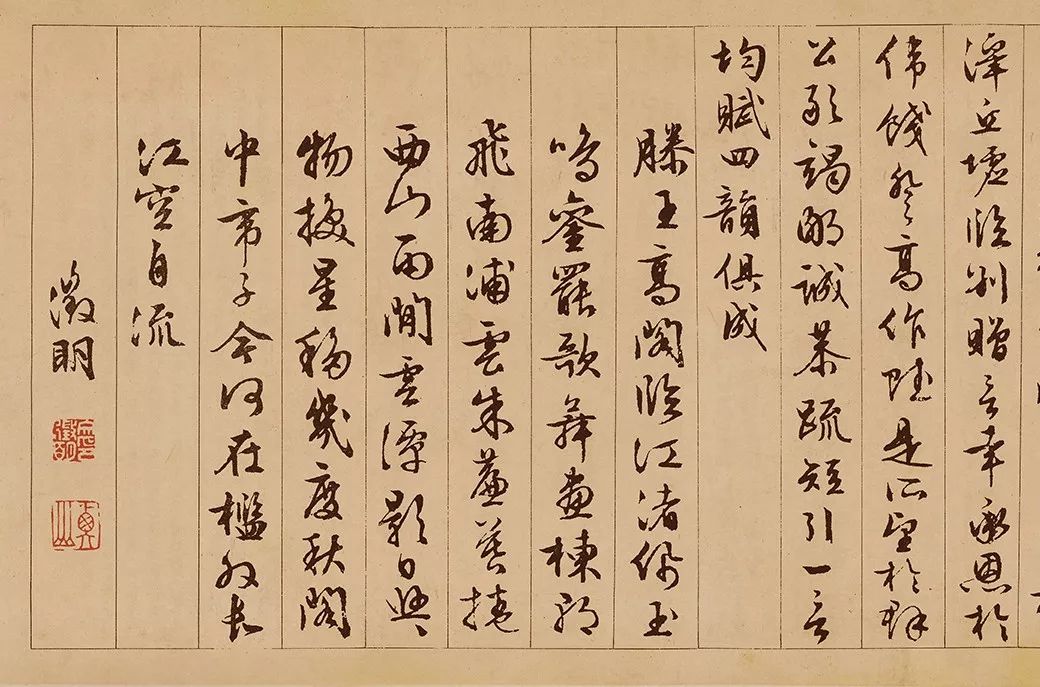 澤丘墟臨別贈言幸承恩於
偉餞登高作賦是所望於群
公敢竭鄙誠恭疏短引一言
均賦四韻俱成
滕王高閣臨江渚佩玉
鳴鑾罷歌舞畫棟朝
飛南浦雲朱簾暮捲
西山雨閒雲潭影日悠々
物換星移幾度秋閣
中帝子今何在檻外長
江空自流
徵明
衡山